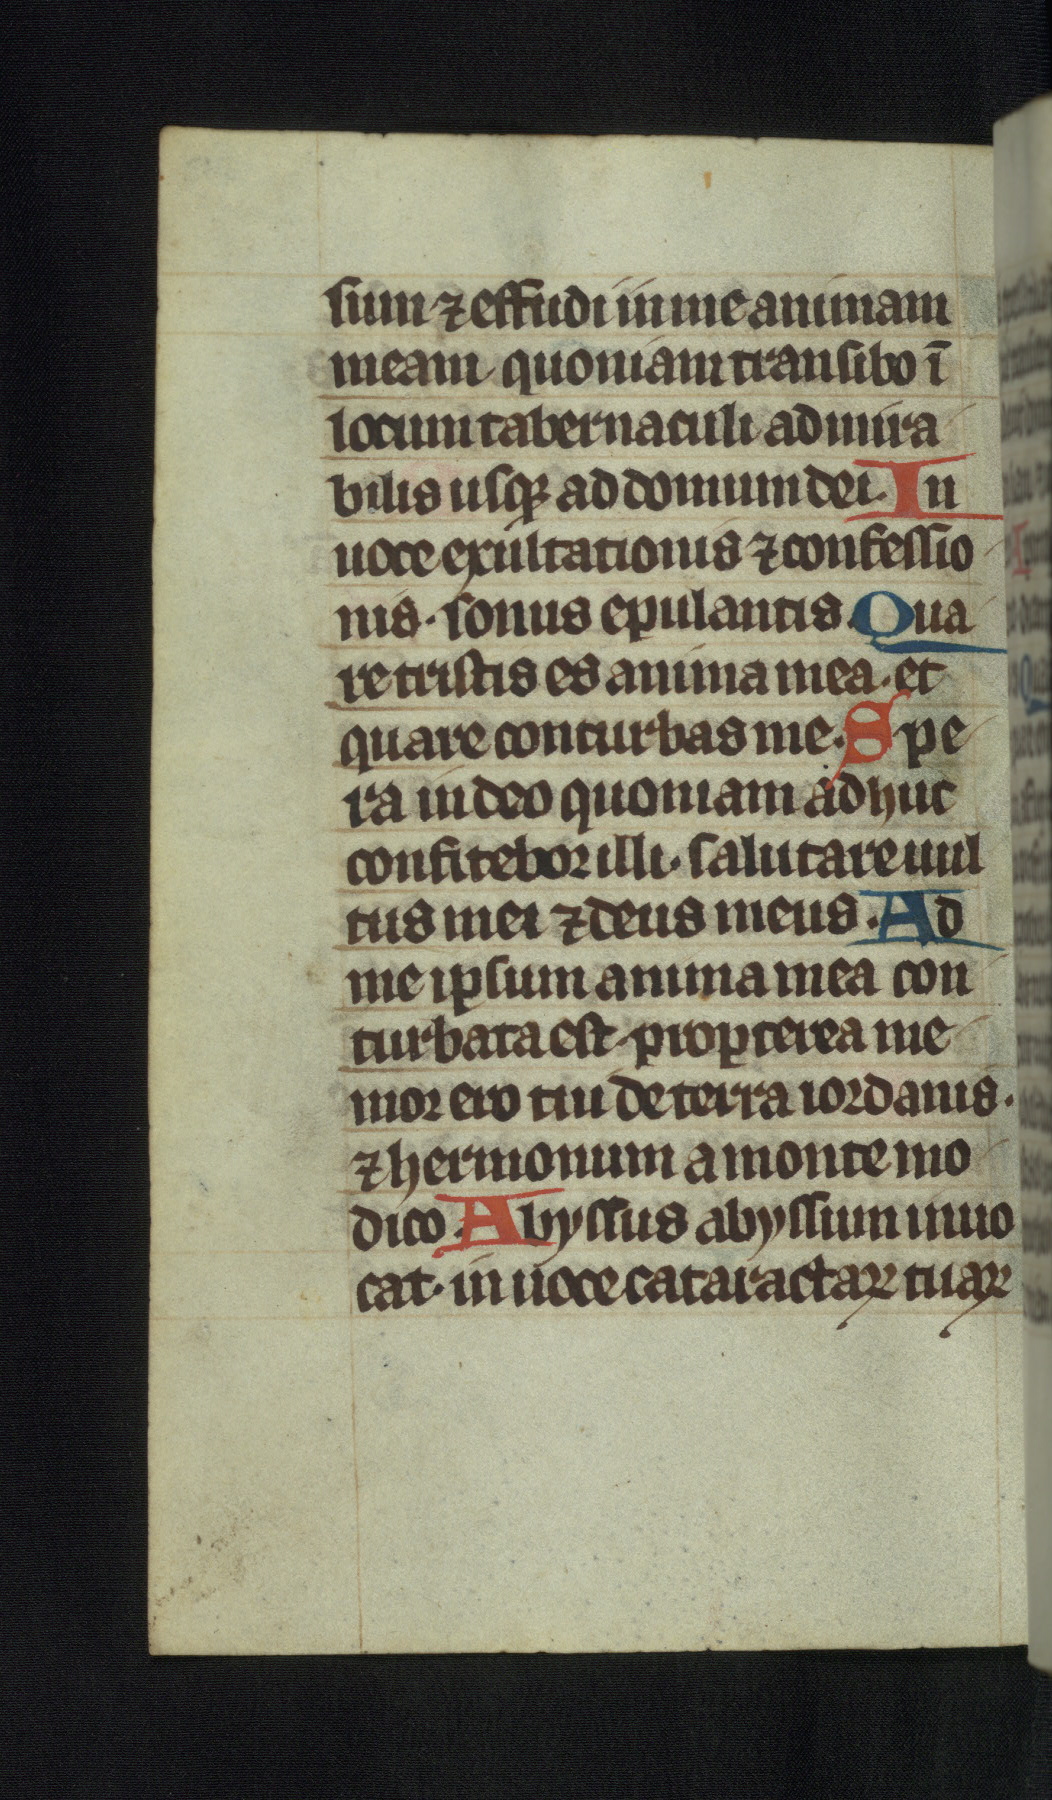 sum ⁊ effudi in me animam
meam quoniam transibo ī
locum tabernaculi admira
bilis usqꝫ ad domum dei. In
uoce exultationis ⁊ confessio
nis. sonus epulantis. Qua
re tristis es anima mea. et
quare conturbas me. Spe
ra in deo quoniam adhuc
confitebor illi. salutare uul
tus mei ⁊ deus meus. Ad
me ipsum anima mea con
turbata est propterea me
mor ero tui de terra iordanis.
⁊ hermonum a monte mo
dico. Abyssus abyssum inuo
cat. in uoce cataractaꝝ tuaꝝ